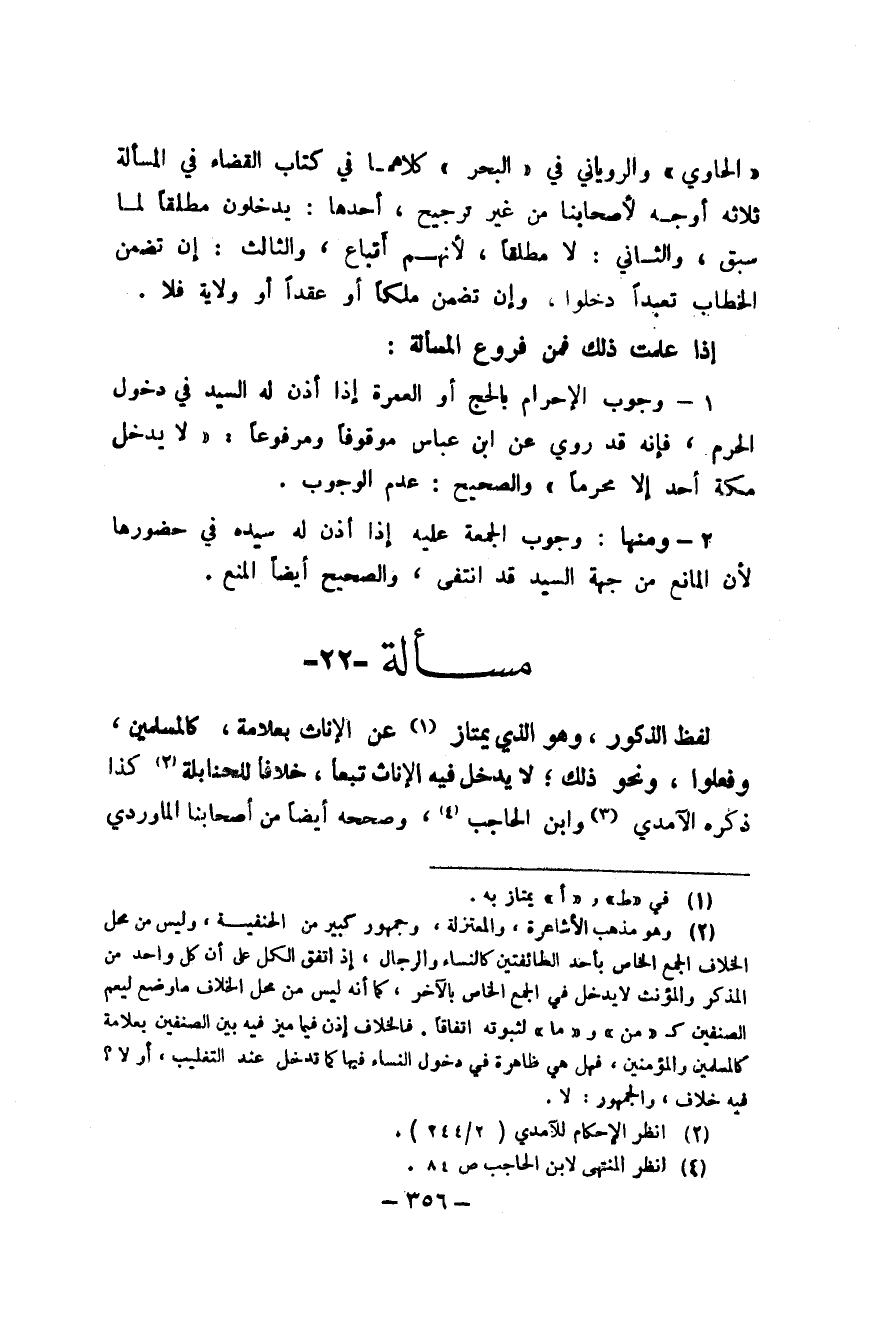 « الحاوي » والروياني في « البحر » كلاهمـا في كتاب القضاء في المسألة
ثلاثه أوجـه لأصحابنا من غير ترجيح ، أحدها : يدخلون مطلقاً لمـا
سبق ، والثـاني : لا مطلقاً ، لأنهـم أتباع ، والثالث : إن تضمن
الخطاب تعبداً دخلوا ، وإن تضمن ملكاً أو عقداً أو ولاية فلا .
إذا علمت ذلك فمن فروع المسألة :
١ – وجوب الإحرام بالحج أو العمرة إذا أذن له السيد في دخول
الحرم ، فإنه قد روي عن ابن عباس موقوفاً ومرفوعاً : « لا يدخل
مكة أحد إلا محرماً » والصحيح : عدم الوجوب .
٢ – ومنها : وجوب الجمعة عليه إذا أذن له سيده في حضورها
لأن المانع من جهة السيد قد انتفى ، والصحيح أيضاً المنع .
مســألة -٢٢-
لفظ الذكور ، وهو الذي يمتاز (١) عن الإناث بعلامة ، كالمسلمين ،
وفعلوا ، ونحو ذلك ؛ لا يدخل فيه الإناث تبعاً ، خلافاً للحنابلة (٢) كذا
ذكره الآمدي (٣) وابن الحاجب (٤) ، وصححه أيضاً من أصحابنا الماوردي
(١) في «ط» و « أ » يمتاز به .
(٢) وهو مذهب الأشاعرة ، والمعتزلة ، وجمهور كبير من الحنفيـة ، وليس من محل
الخلاف الجمع الخاص بأحد الطائفتين كالنساء والرجال ، إذ اتفق الكل على أن كل واحد من
المذكر والمؤنث لايدخل في الجمع الخاص بالآخر ، كما أنه ليس من محل الخلاف ماوضع ليعم
الصنفين كـ « من » و « ما » لثبوته اتفاقاً . فالخلاف إذن فيما ميز فيه بين الصنفين بعلامة
كالمسلمين والمؤمنين ، فهل هي ظاهرة في دخول النساء فيها كما تدخل عند التغليب ، أو لا ؟
فيه خلاف ، والجمهور : لا .
(٣) انظر الإحكام للآمدي ( ٢٤٤/٢ ) .
(٤) انظر المنتهى لابن الحاجب ص ٨٤ .
– ٣٥٦ –